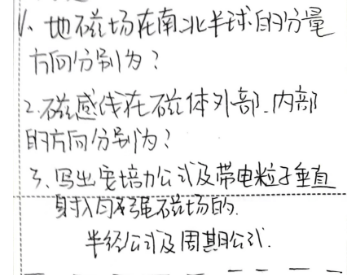 1、地磁场在南北半球的分量
方向分别为？
2.磁感线在磁体外部、内部
的方向分别为？
3、写出安培力公式及带电粒子垂直
射入匀强磁场的
半径公式及周期公式.